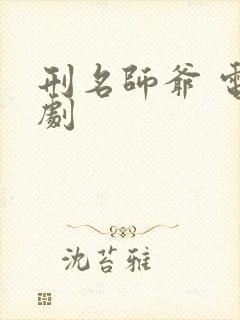 刑名師爺 電
劇
沈苔雅